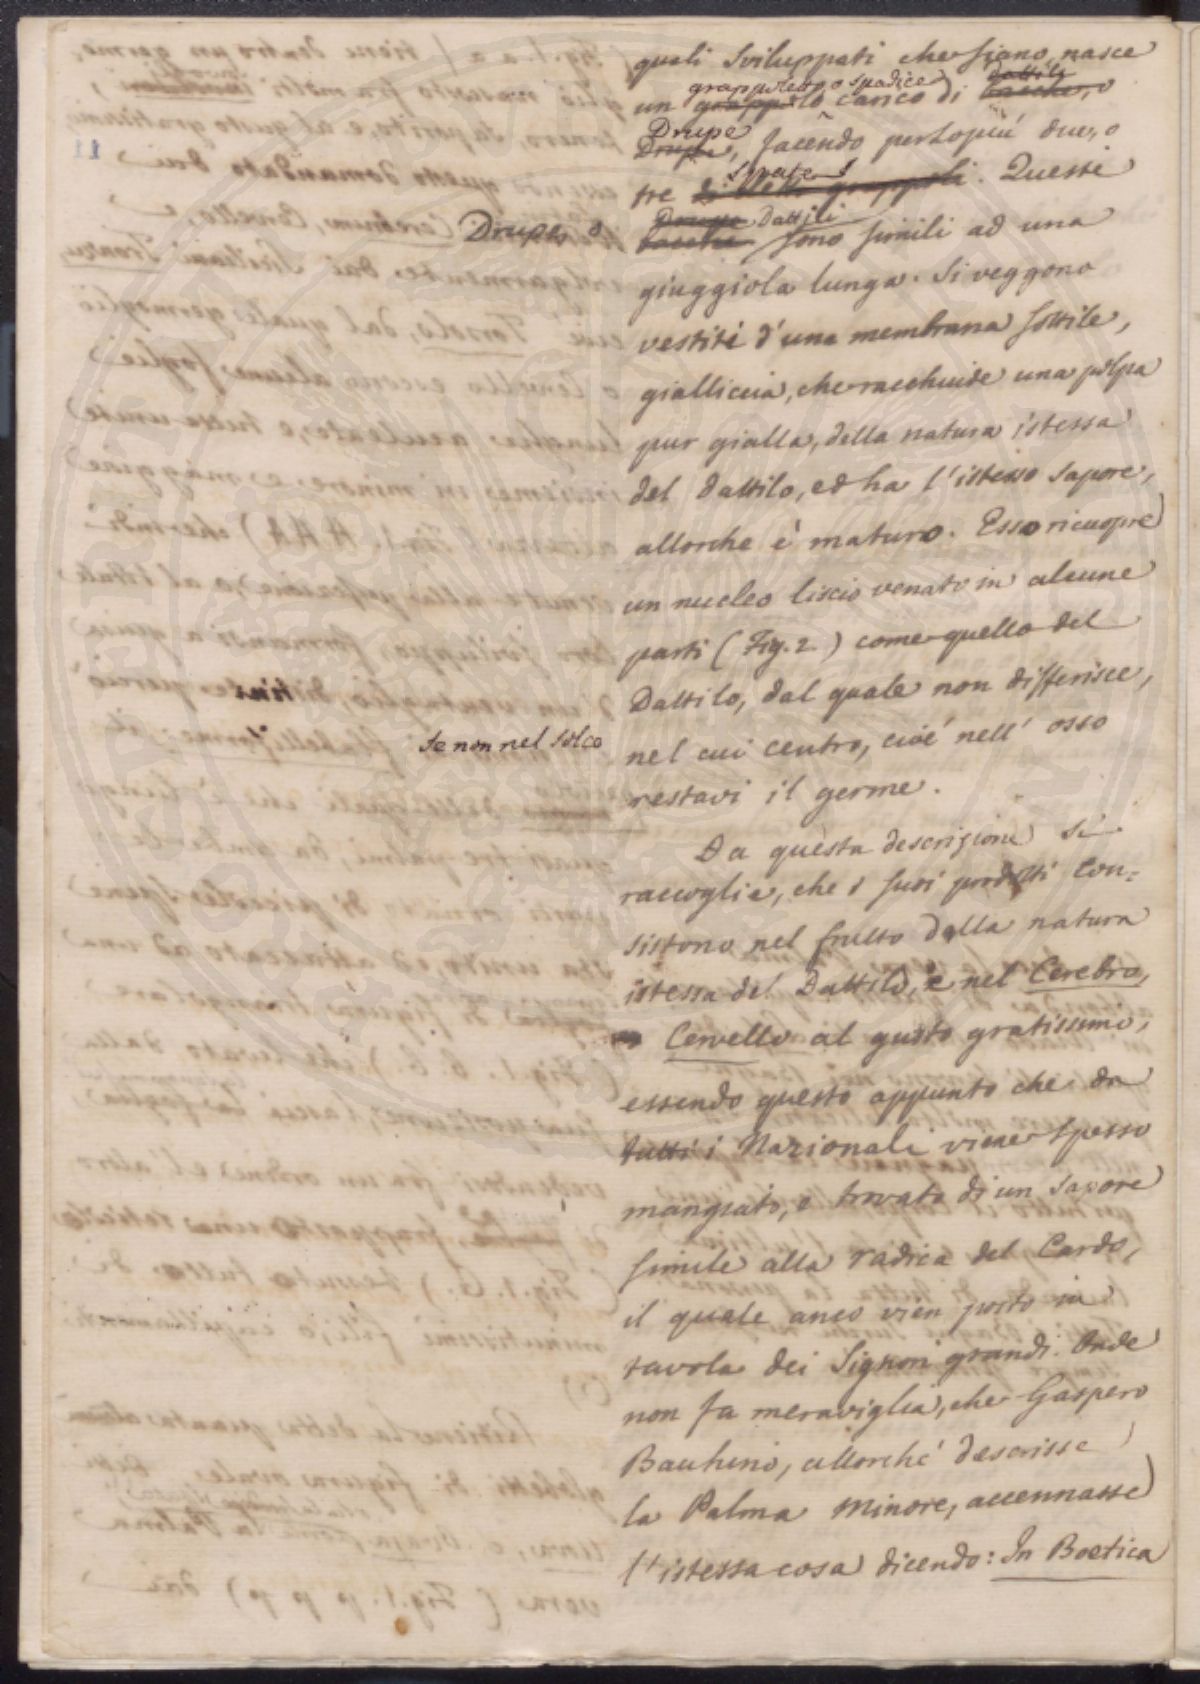 quali sviluppati che siano, nasce
grappoletto o spadice dattili
un grappolo carico di bacche, o
Drupe
Drupe, facendo perlopiù due, o
spate
tre di detti grappoli. Questi
Drupe Dattili
Drupe, o
bacche sono simili ad una
giuggiola lunga. Si veggono
vestiti d'una membrana sottile,
gialliccia, che racchiude una polpa
pur gialla, della natura istessa
del dattilo, ed ha l'istesso sapore,
allorche è maturo. Esso ricuopre
un nucleo liscio venato in alcune
parti (Fig. 2.) come quello del
Dattilo, dal quale non differisce,
se non nel solco
nel cui centro, cioè nell' osso
restavi il germe.
Da questa descrizione si
raccoglie, che i suoi prodotti con=
sistono nel frutto della natura
istessa del Dattilo, e nel Cerebro,
Cervello al gusto gratissimo,
essendo questo appunto che da
tutti i Nazionali viene spesso
mangiato, e trovato di un sapore
simile alla radica del Cardo,
il quale anco vien posto in
tavola dei Signori grandi. Onde
non fa meraviglia, che Gaspero
Bauhino, allorché descrisse
la Palma minore, accennasse
l'istessa cosa dicendo: In Boetica